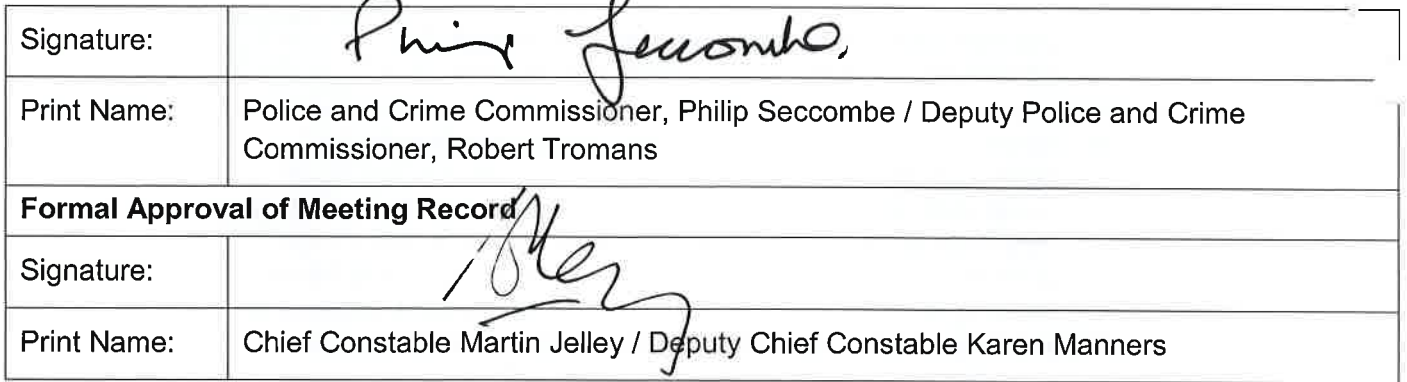 Signature: Philip Seccombe.
Print Name: Police and Crime Commissioner, Philip Seccombe / Deputy Police and Crime
Commissioner, Robert Tromans
Formal Approval of Meeting Record
Signature:
Print Name: Chief Constable Martin Jelley / Deputy Chief Constable Karen Manners